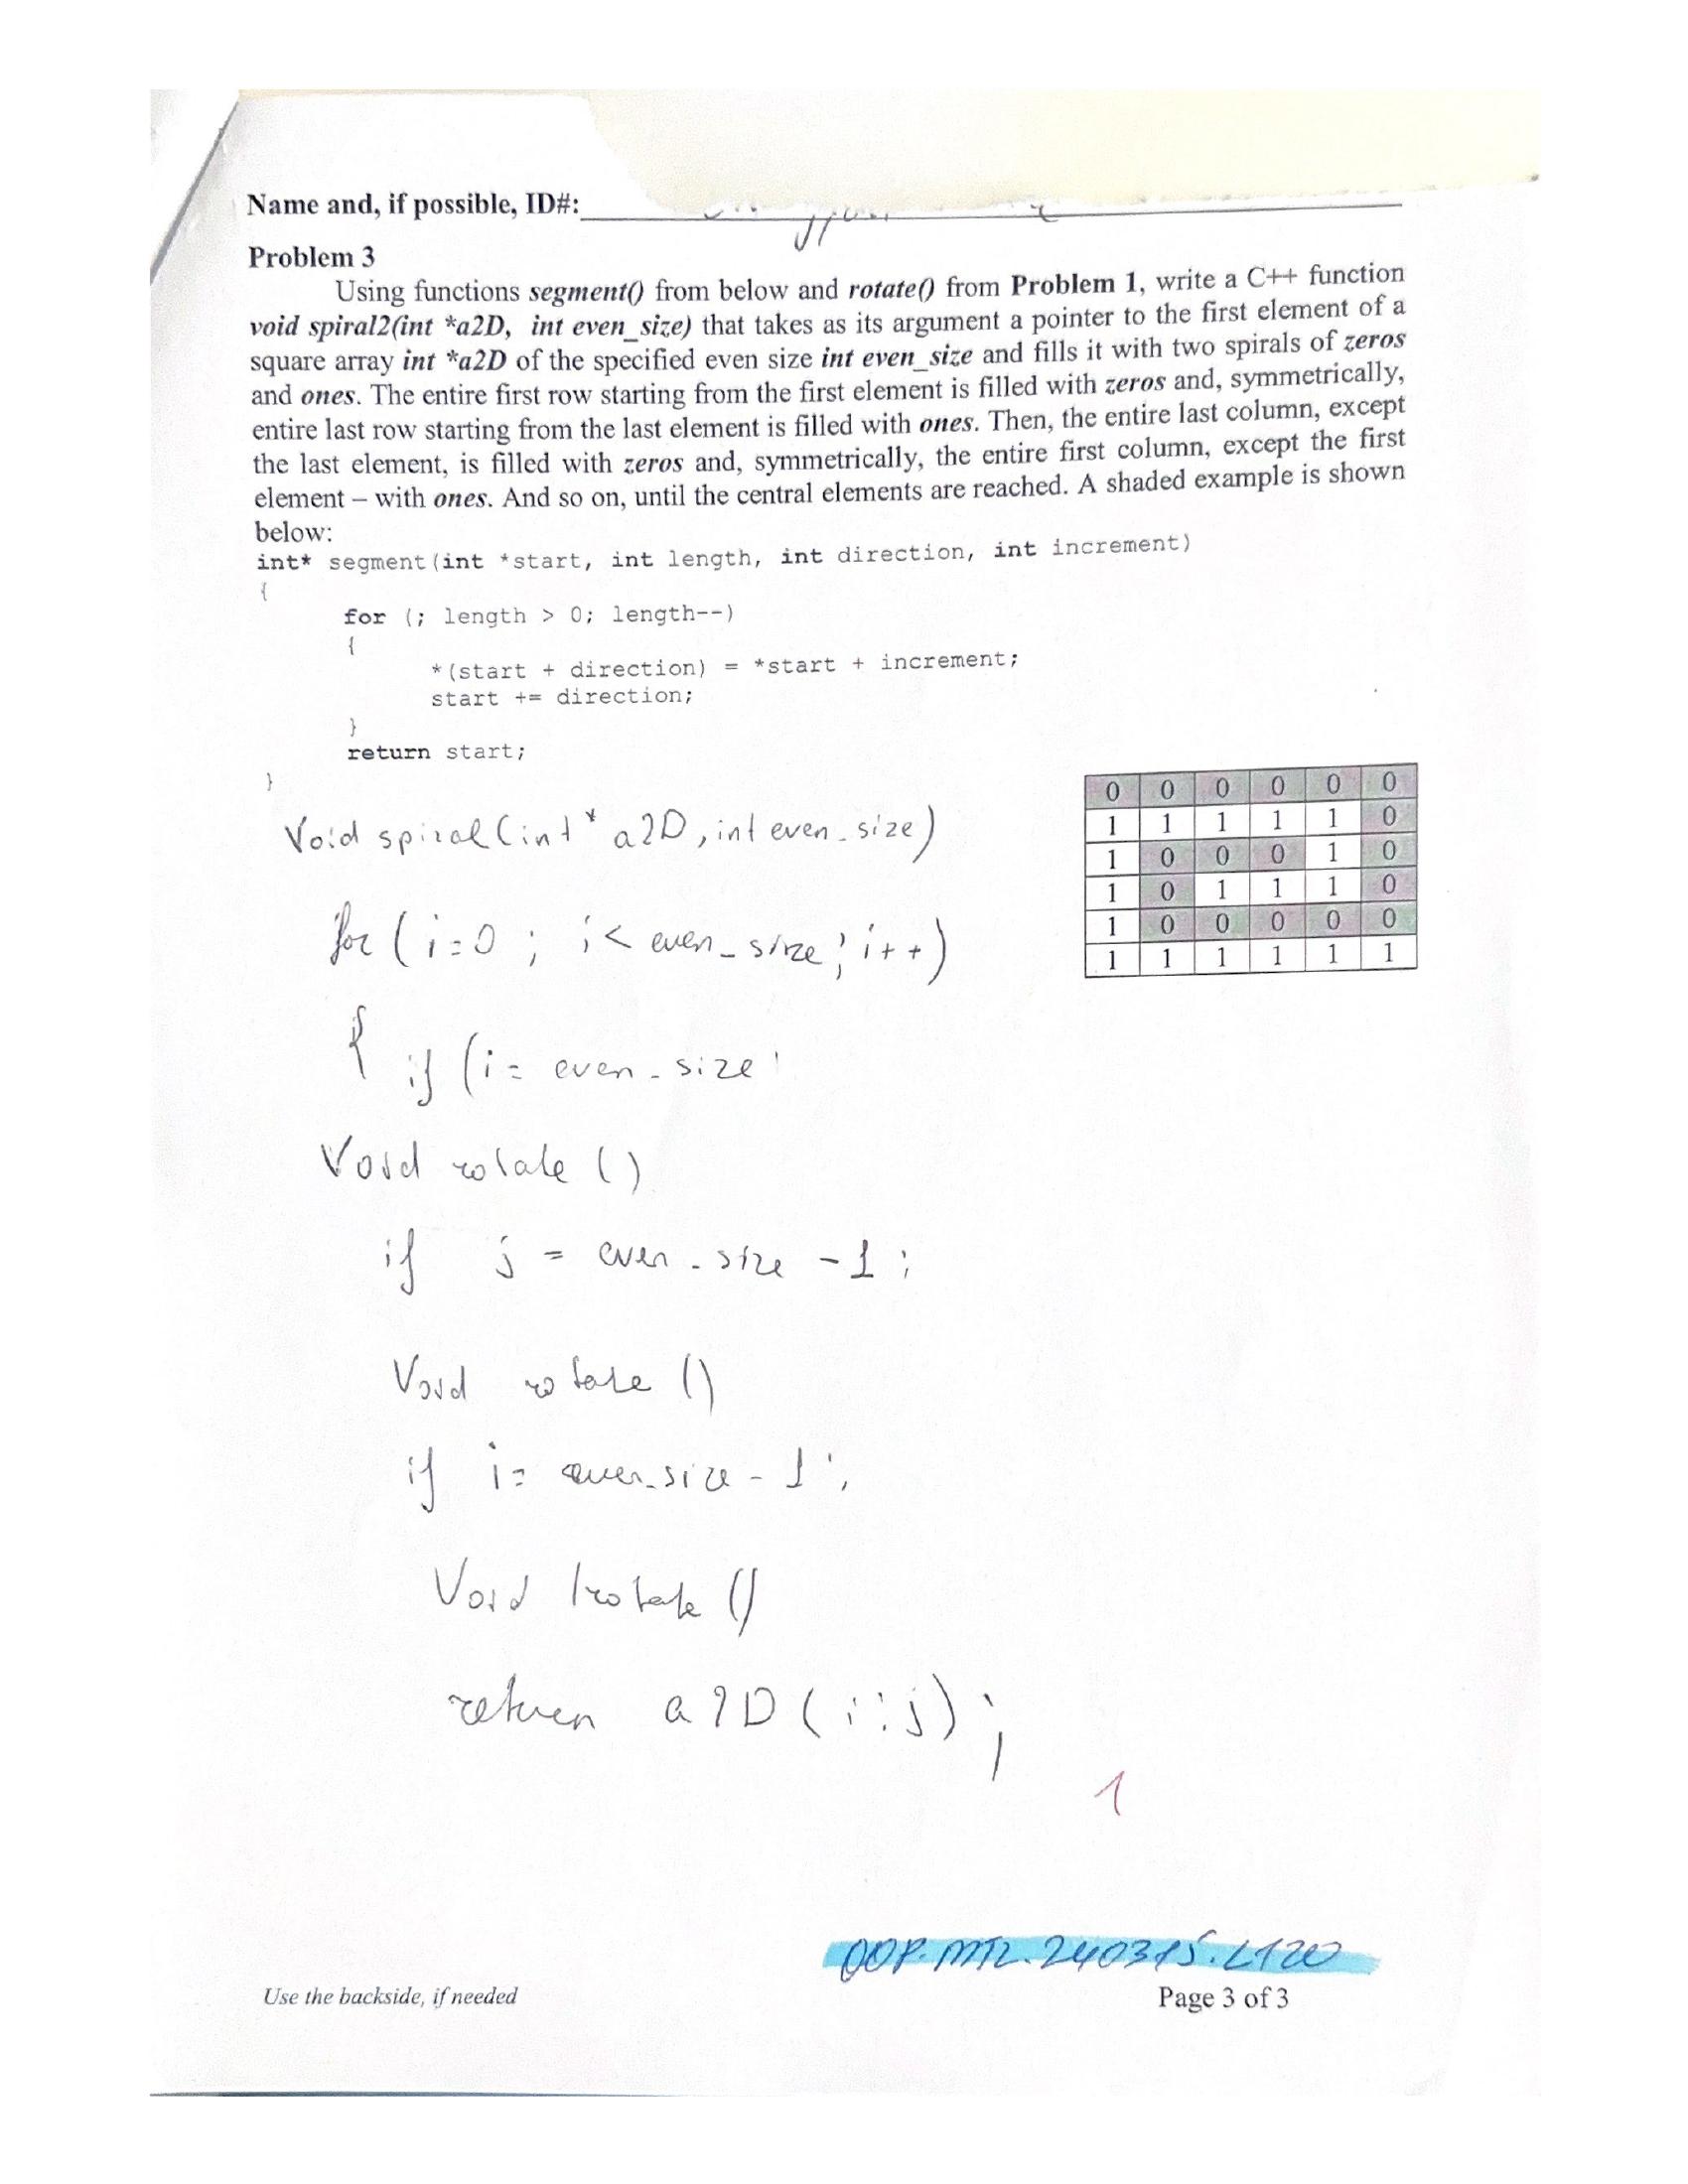 Name and, if possible, ID#:
Problem 3
Using functions segment() from below and rotate() from Problem 1, write a C++ function
void spiral2(int *a2D, int even_size) that takes as its argument a pointer to the first element of a
square array int *a2D of the specified even size int even_size and fills it with two spirals of zeros
and ones. The entire first row starting from the first element is filled with zeros and, symmetrically,
entire last row starting from the last element is filled with ones. Then, the entire last column, except
the last element, is filled with zeros and, symmetrically, the entire first column, except the first
element – with ones. And so on, until the central elements are reached. A shaded example is shown
below:
int* segment(int *start, int length, int direction, int increment)
{
for (; length > 0; length--)
{
*(start + direction) = *start + increment;
start += direction;
}
return start;
}
0 0 0 0 0 0
1 1 1 1 1 0
1 0 0 0 1 0
1 0 1 1 1 0
1 0 0 0 0 0
1 1 1 1 1 1
Void spiral (int * a2D, int even_size)
for (i=0 ; i< even_size; i++)
{
if (i= even_size
Void rotate ()
if j = even_size -1;
Void rotate ()
if i= even_size - 1;
Void rotate ()
return a2D(i:j);
1
OOP.MT2.240315.L120
Use the backside, if needed
Page 3 of 3